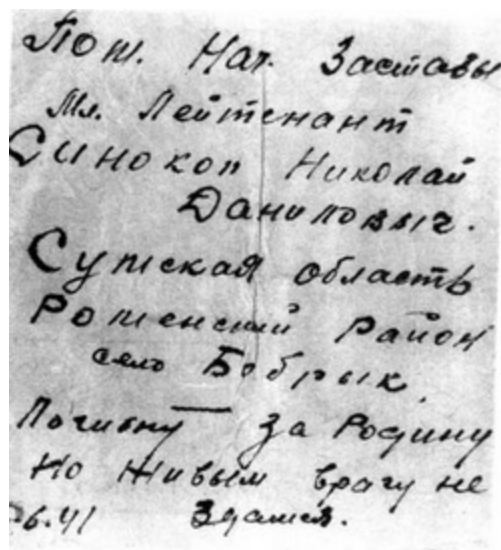 Пом. Нач. Заставы
Мл. Лейтенант
Синокоп Николай
Данилович.
Сумская область
Роменский район
село Бобрык
Погибну за Родину
но живым врагу не
6.41 здамся.